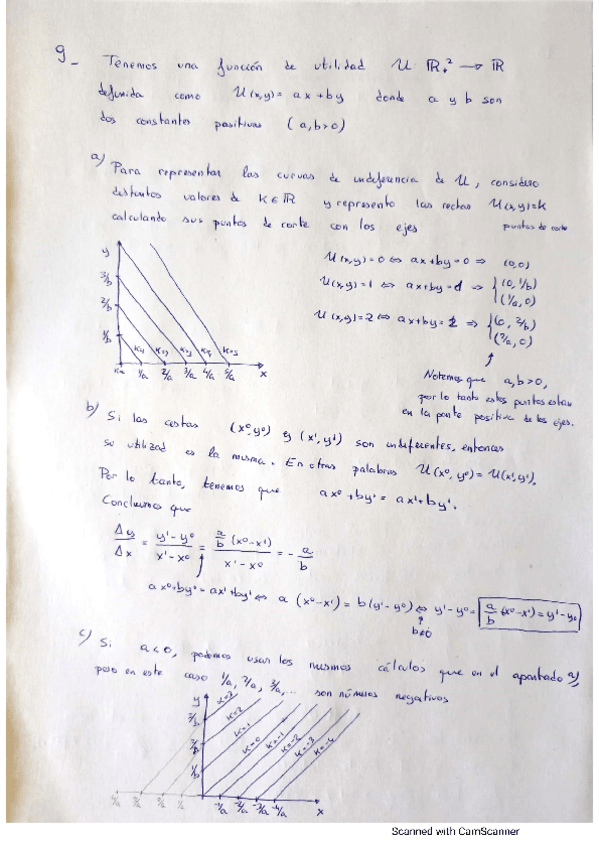 9_ Tenemos una función de utilidad U: ℝ₊² → ℝ
definida como U(x,y) = ax + by donde a y b son
dos constantes positivas (a,b>0)
a) Para representar las curvas de indeferencia de U, considero
distintos valores de K∈ℝ y represento las rectas U(x,y)=k
calculando sus puntos de corte con los ejes
puntos de corte
U(x,y)=0 ⇔ ax+by=0 ⇒ (0,0)
U(x,y)=1 ⇔ ax+by=1 ⇒ { (0, 1/b)
(1/a, 0)
U(x,y)=2 ⇔ ax+by=2 ⇒ { (0, 2/b)
(2/a, 0)
y
3/b
2/b
1/b
1/a 2/a 3/a 4/a 5/a x
Notemos que a,b>0,
por lo tanto estos puntos estan
en la parte positiva de los ejes.
b) Si las cestas (x⁰,y⁰) y (x¹,y¹) son indiferentes, entonces
su utilidad es la misma. En otras palabras U(x⁰,y⁰)=U(x¹,y¹).
Por lo tanto, tenemos que ax⁰+by⁰ = ax¹+by¹.
Concluimos que
Δy/Δx = (y¹-y⁰)/(x¹-x⁰) = (a/b (x⁰-x¹))/(x¹-x⁰) = - a/b
ax⁰+by⁰=ax¹+by¹ ⇔ a(x⁰-x¹) = b(y¹-y⁰) ⇔ y¹-y⁰ = a/b (x⁰-x¹) = y¹-y⁰
b≠0
c) Si a<0, podemos usar los mismos cálculos que en el apartado a),
pero en este caso 1/a, 2/a, 3/a,... son números negativos
y
K=3
K=2
K=1
K=0
K=-1
K=-2
K=-3
K=-4
3/b
2/b
1/b
4/a 3/a 2/a 1/a -1/a -2/a -3/a -4/a x
Scanned with CamScanner